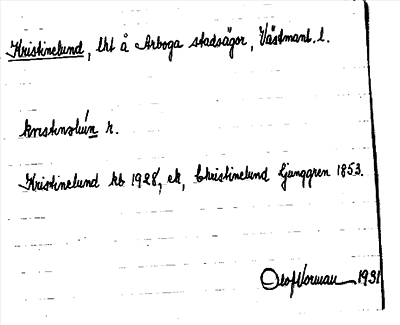 Kristinelund, lht å Arboga stadsägor, Västmanl. l.
kristinslún r.
Kristinelund kb 1928, ek, Christinelund Ljunggren 1853.
Olof Norman 1931